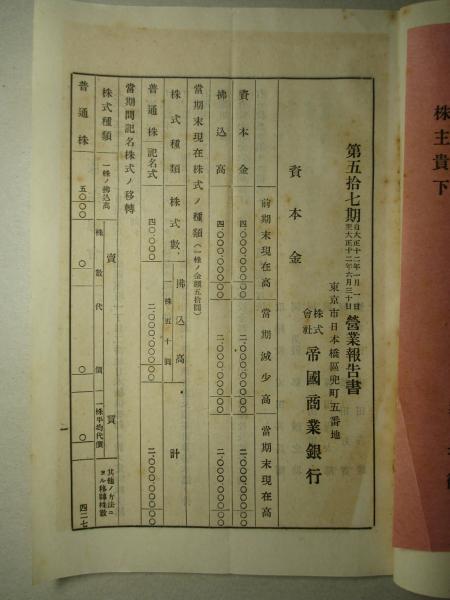 株主貴下
第五拾七期 自大正十二年一月一日 至大正十二年六月三十日 營業報告書
東京市日本橋區兜町五番地
株式會社 帝國商業銀行
資本金
前期末現在高 當期減少高 當期末現在高
資本金 四、〇〇〇、〇〇〇 二、〇〇〇、〇〇〇 二、〇〇〇、〇〇〇
拂込高 四、〇〇〇、〇〇〇 二、〇〇〇、〇〇〇 二、〇〇〇、〇〇〇
當期末現在株式ノ種類(一株ノ金額五拾圓)
株式種類 株式數 拂込高 計
一株五十圓
普通株記名式 四〇、〇〇〇 二、〇〇〇、〇〇〇 二、〇〇〇、〇〇〇
當期間記名株式ノ移轉
株式種類 一株ノ拂込高 賣買 其他ノ方法ニヨル移轉株數
株數 代價 一株平均代價
普通株 五〇、〇〇 〇 〇 〇 四二七
一